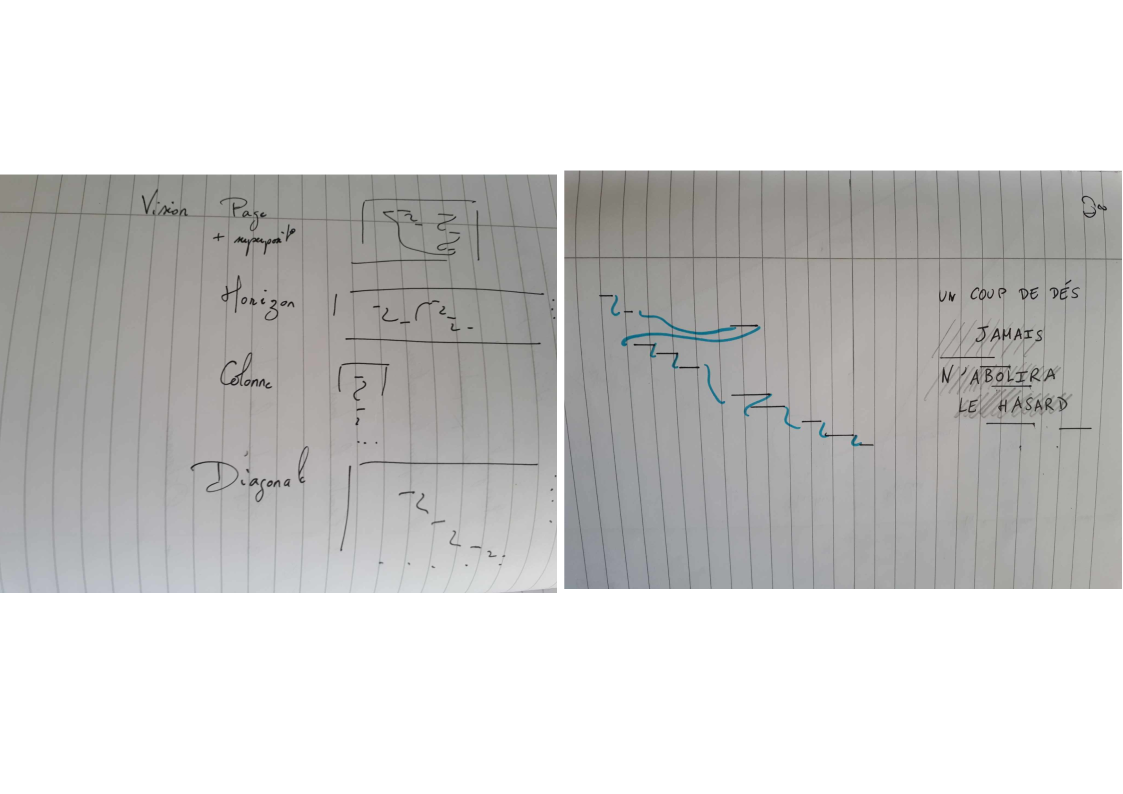 Vision Page
+ superposit°
Horizon
Colonne
Diagonal
UN COUP DE DÉS
JAMAIS
N'ABOLIRA
LE HASARD